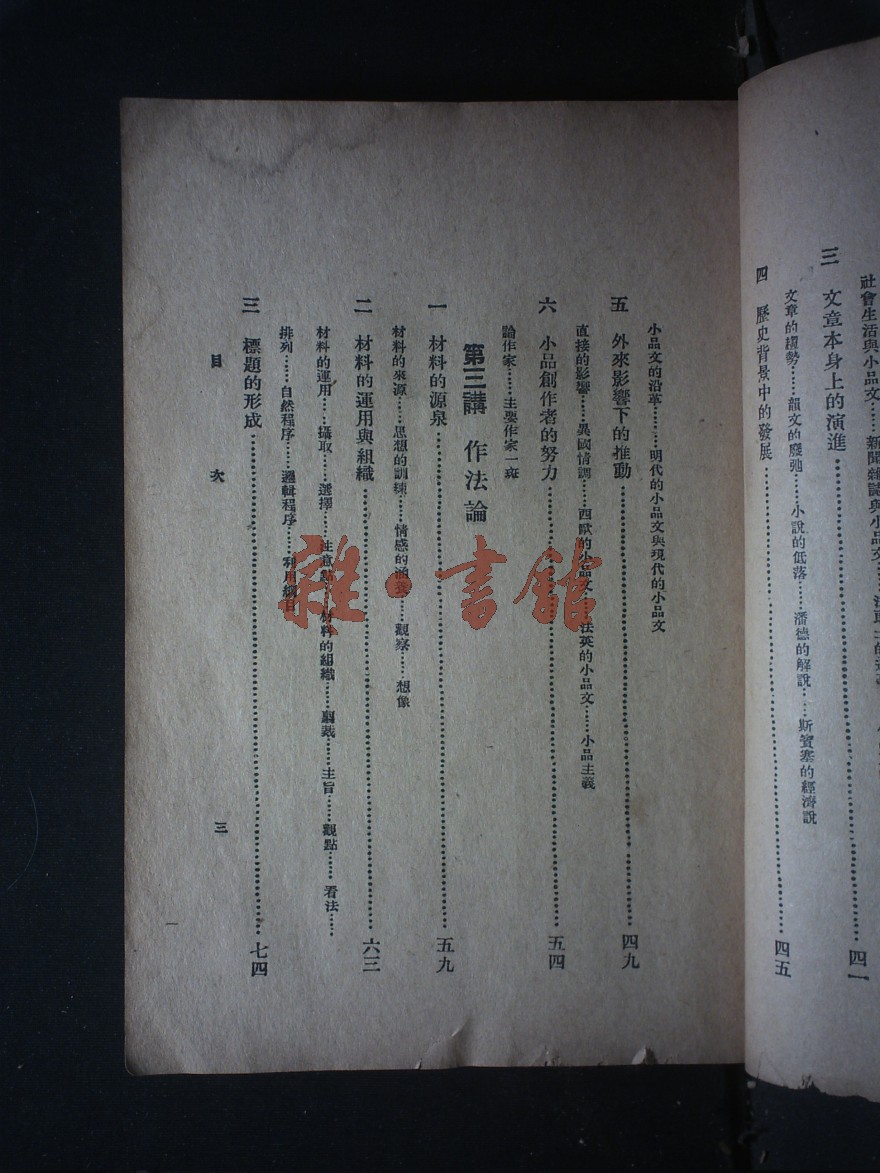 社會生活與小品文……新聞雜誌與小品文
三 文章本身上的演進……四一
文章的趨勢……韻文的廢弛……小說的低落……潘德的解說……斯賓塞的經濟說
四 歷史背景中的發展……四五
小品文的沿革……明代的小品文與現代的小品文
五 外來影響下的推動……四九
直接的影響……異國情調……西歐的小品文……法英的小品文……小品主義
六 小品創作者的努力……五四
論作家……主要作家一斑
第三講 作法論
一 材料的源泉……五九
材料的來源……思想的訓練……情感的涵養……觀察……想像
二 材料的運用與組織……六三
材料的運用……攝取……選擇……注意點……材料的組織……剪裁……主旨……觀點……看法……
排列……自然程序……邏輯程序……利用綱目
三 標題的形成……七四
目 次 三
雜·書館